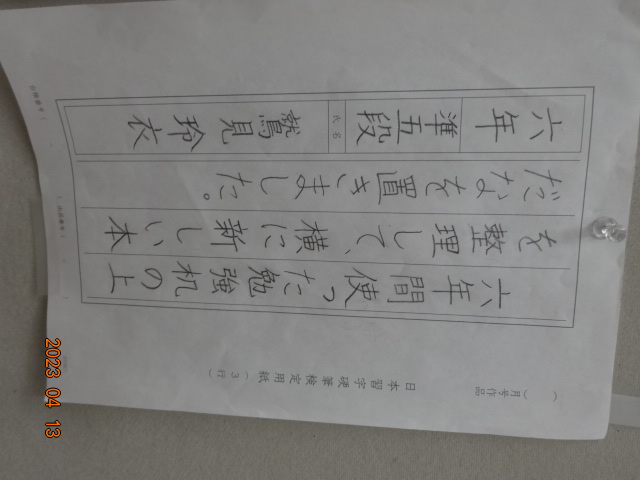 (　)月号作品
日本習字硬筆検定用紙(3行)
六年間使った勉強机の上
を整理して、横に新しい本
だなを置きました。
六年 準五段 氏名 鷲見玲衣
2023 04 13